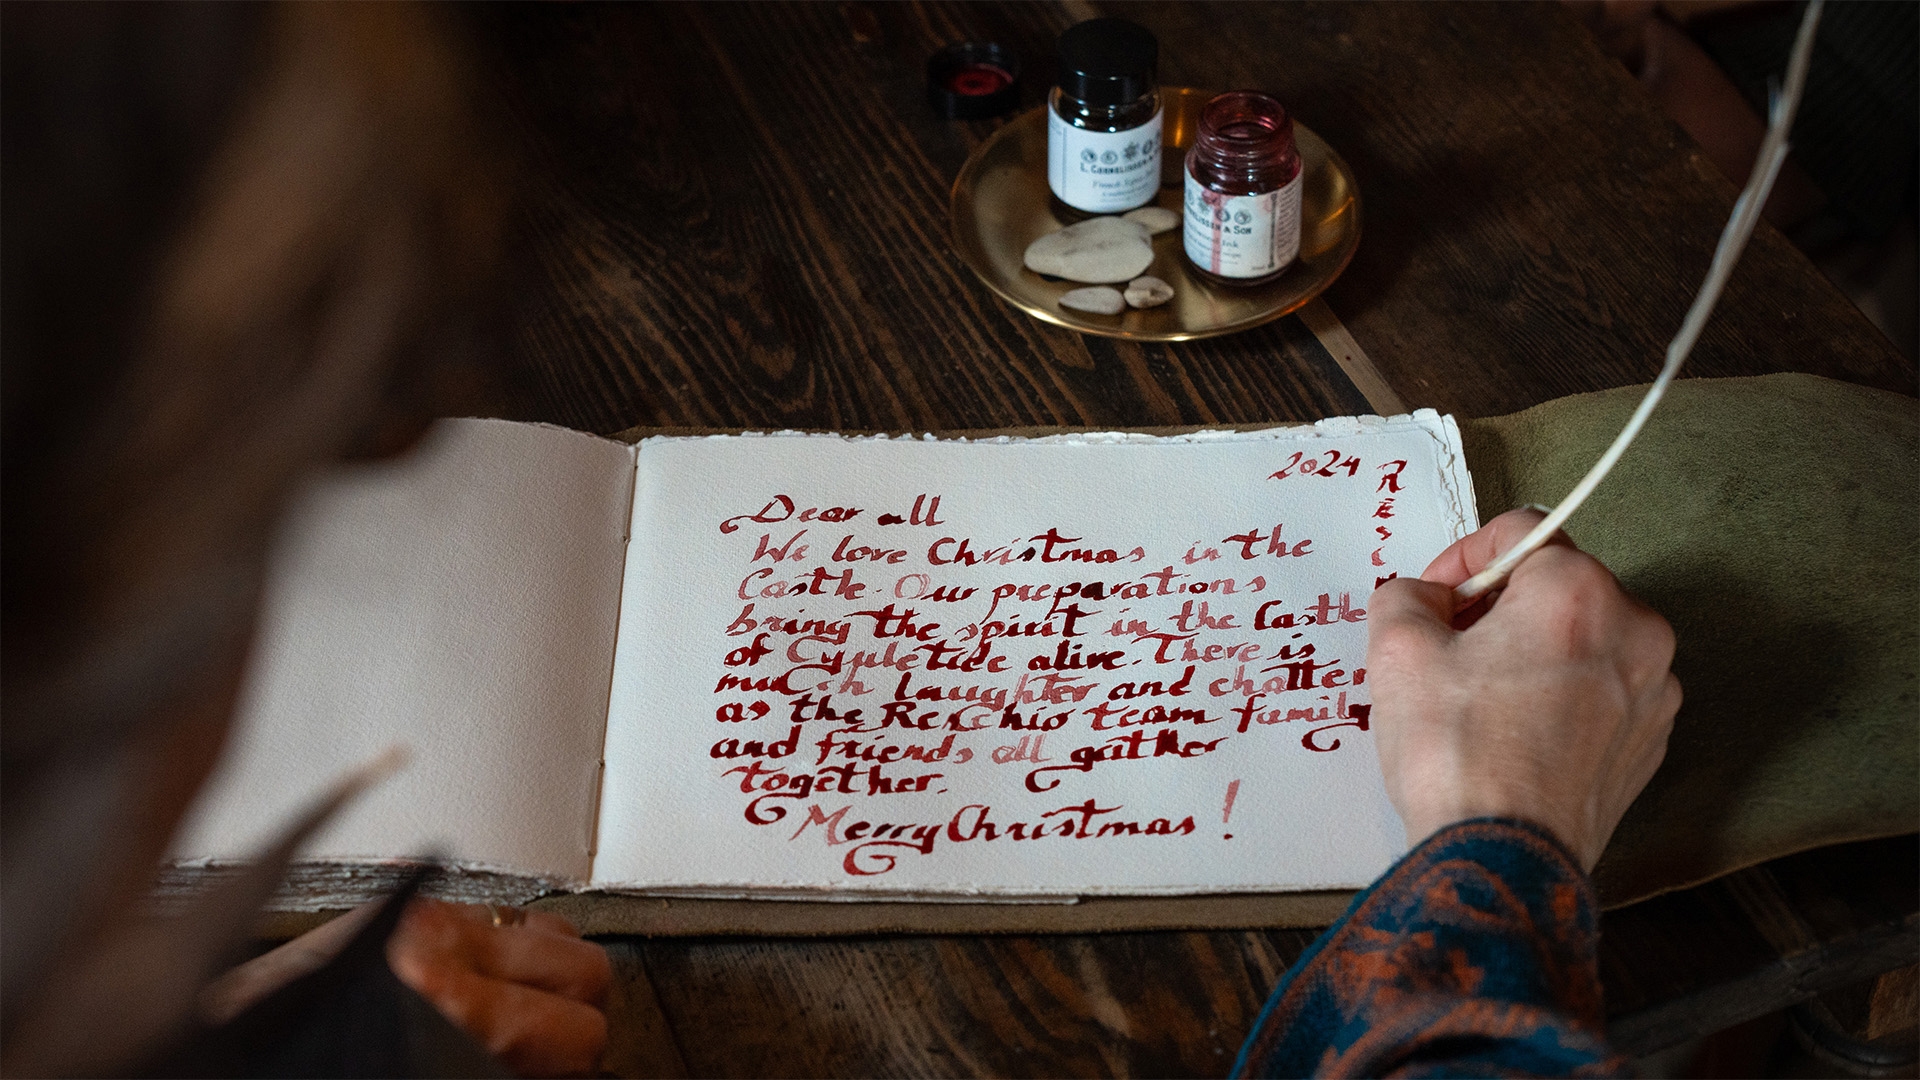 L. CORNELISSEN &
& SON
Ink
2024
R
E
S
C
H
Dear all
We love Christmas in the
Castle. Our preparations
bring the spirit in the Castle
of Cyuletide alive. There is
much laughter and chatter
as the Reschio team family
and friends all gather
together.
Merry Christmas!